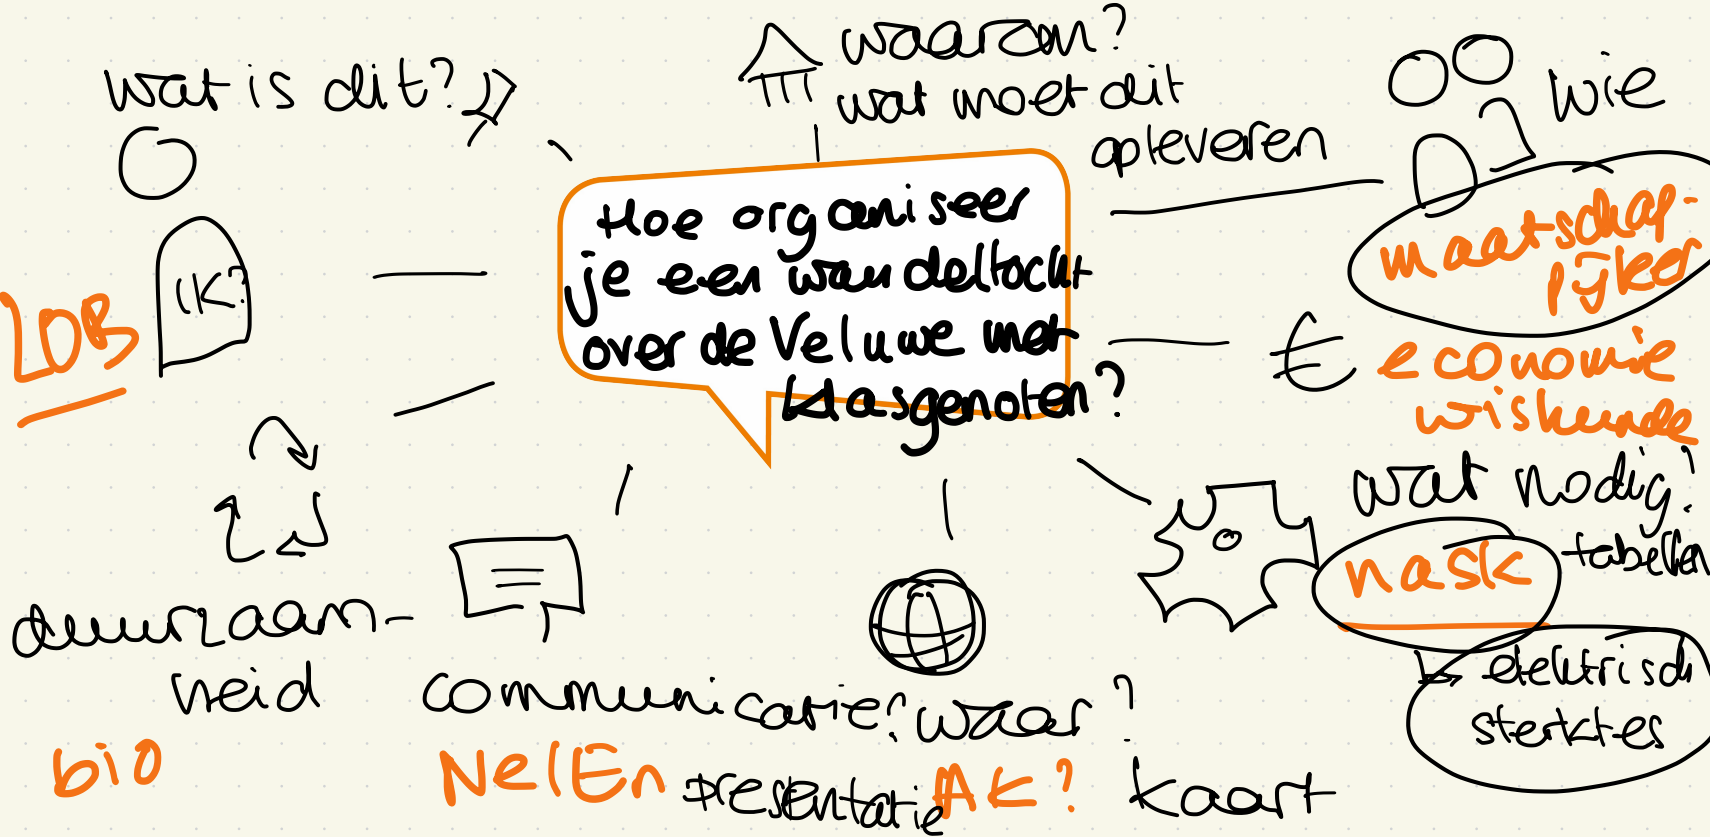 wat is dit?
waarom?
wat moet dit
opleveren
wie
maatschap-
pijker
Hoe organiseer
je een wandeltocht
over de Veluwe met
klasgenoten?
IK?
LOB
€ economie
wiskunde
wat nodig?
nask
tabellen
elektrisch
sterktes
duurzaam-
heid
bio
communicatie?
Ne/En
presentatie
waar?
AK?
kaart